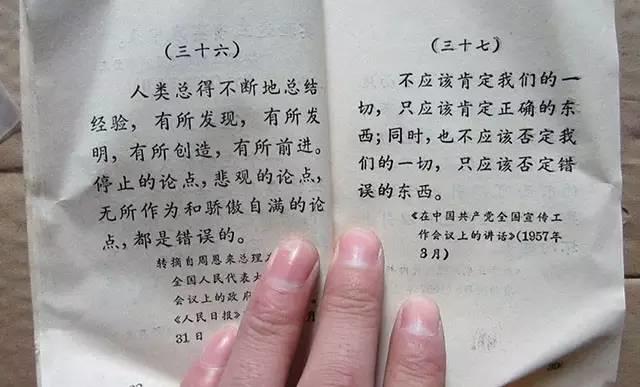 （三十六）
人类总得不断地总结
经验，有所发现，有所发
明，有所创造，有所前进。
停止的论点，悲观的论点，
无所作为和骄傲自满的论
点，都是错误的。
转摘自周恩来总理
全国人民代表大
会议上的政府
《人民日报》
31日
（三十七）
不应该肯定我们的一
切，只应该肯定正确的东
西；同时，也不应该否定我
们的一切，只应该否定错
误的东西。
《在中国共产党全国宣传工
作会议上的讲话》（1957年
3月）